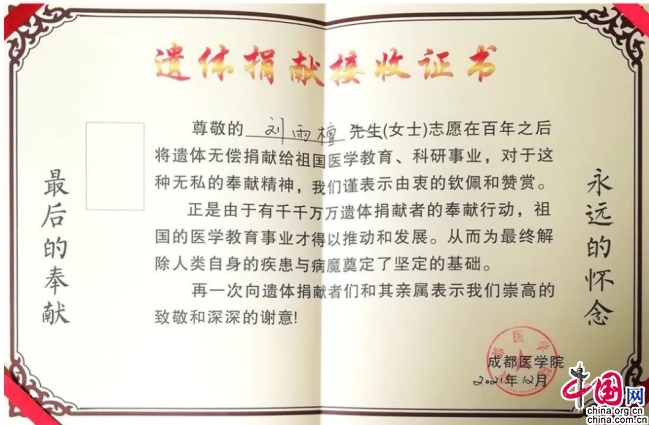 遗体捐献接收证书
尊敬的 刘雨檀 先生(女士)志愿在百年之后
将遗体无偿捐献给祖国医学教育、科研事业，对于这
种无私的奉献精神，我们谨表示由衷的钦佩和赞赏。
正是由于有千千万万遗体捐献者的奉献行动，祖
国的医学教育事业才得以推动和发展。从而为最终解
除人类自身的疾患与病魔奠定了坚定的基础。
再一次向遗体捐献者们和其亲属表示我们崇高的
致敬和深深的谢意!
最后的奉献
永远的怀念
成都医学院
2021年12月
中国网
china.org.cn
china.com.cn